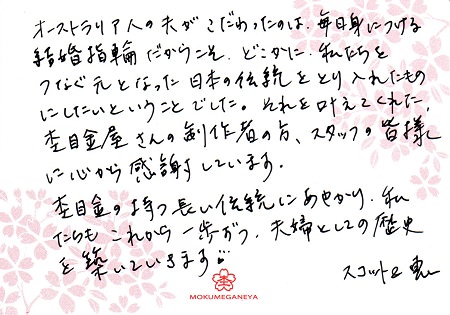 オーストラリア人の夫がこだわったのは、毎日身につける
結婚指輪だからこそ、どこかに、私たちを
つなぐ元となった日本の伝統をとり入れたもの
にしたいということでした。それを叶えてくれた、
杢目金屋さんの創作者の方、スタッフの皆様
に心から感謝しています。
杢目金の持つ長い伝統にあやかり、私
たちもこれから一歩ずつ、夫婦としての歴史
を築いていきます
スコット&恵
MOKUMEGANEYA